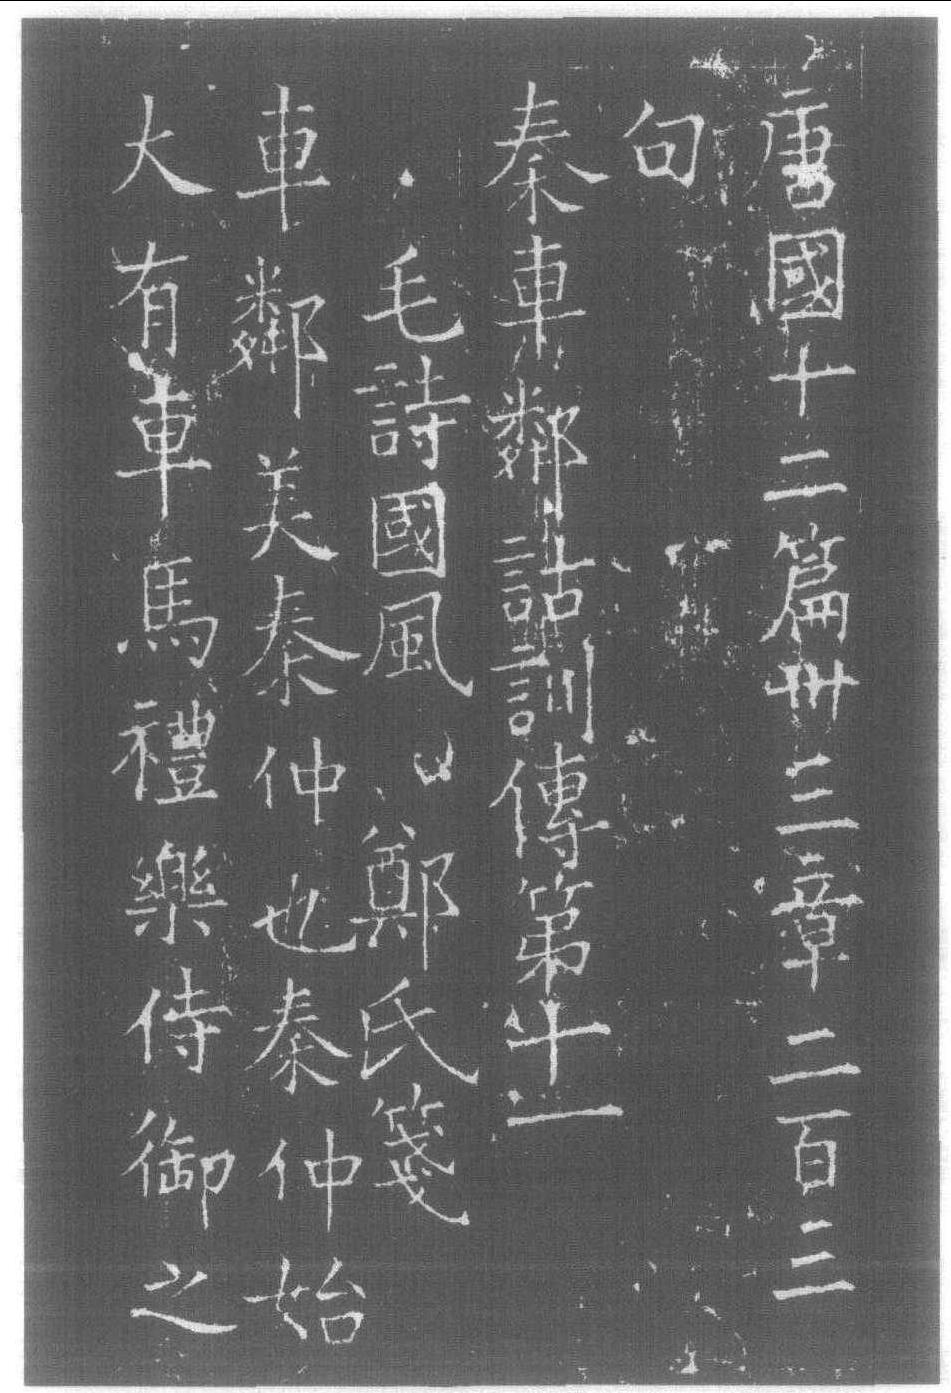 唐國十二篇卅三章二百三
句
秦車鄰詁訓傳第十一
毛詩國風 鄭氏箋
車鄰美秦仲也秦仲始
大有車馬禮樂侍御之